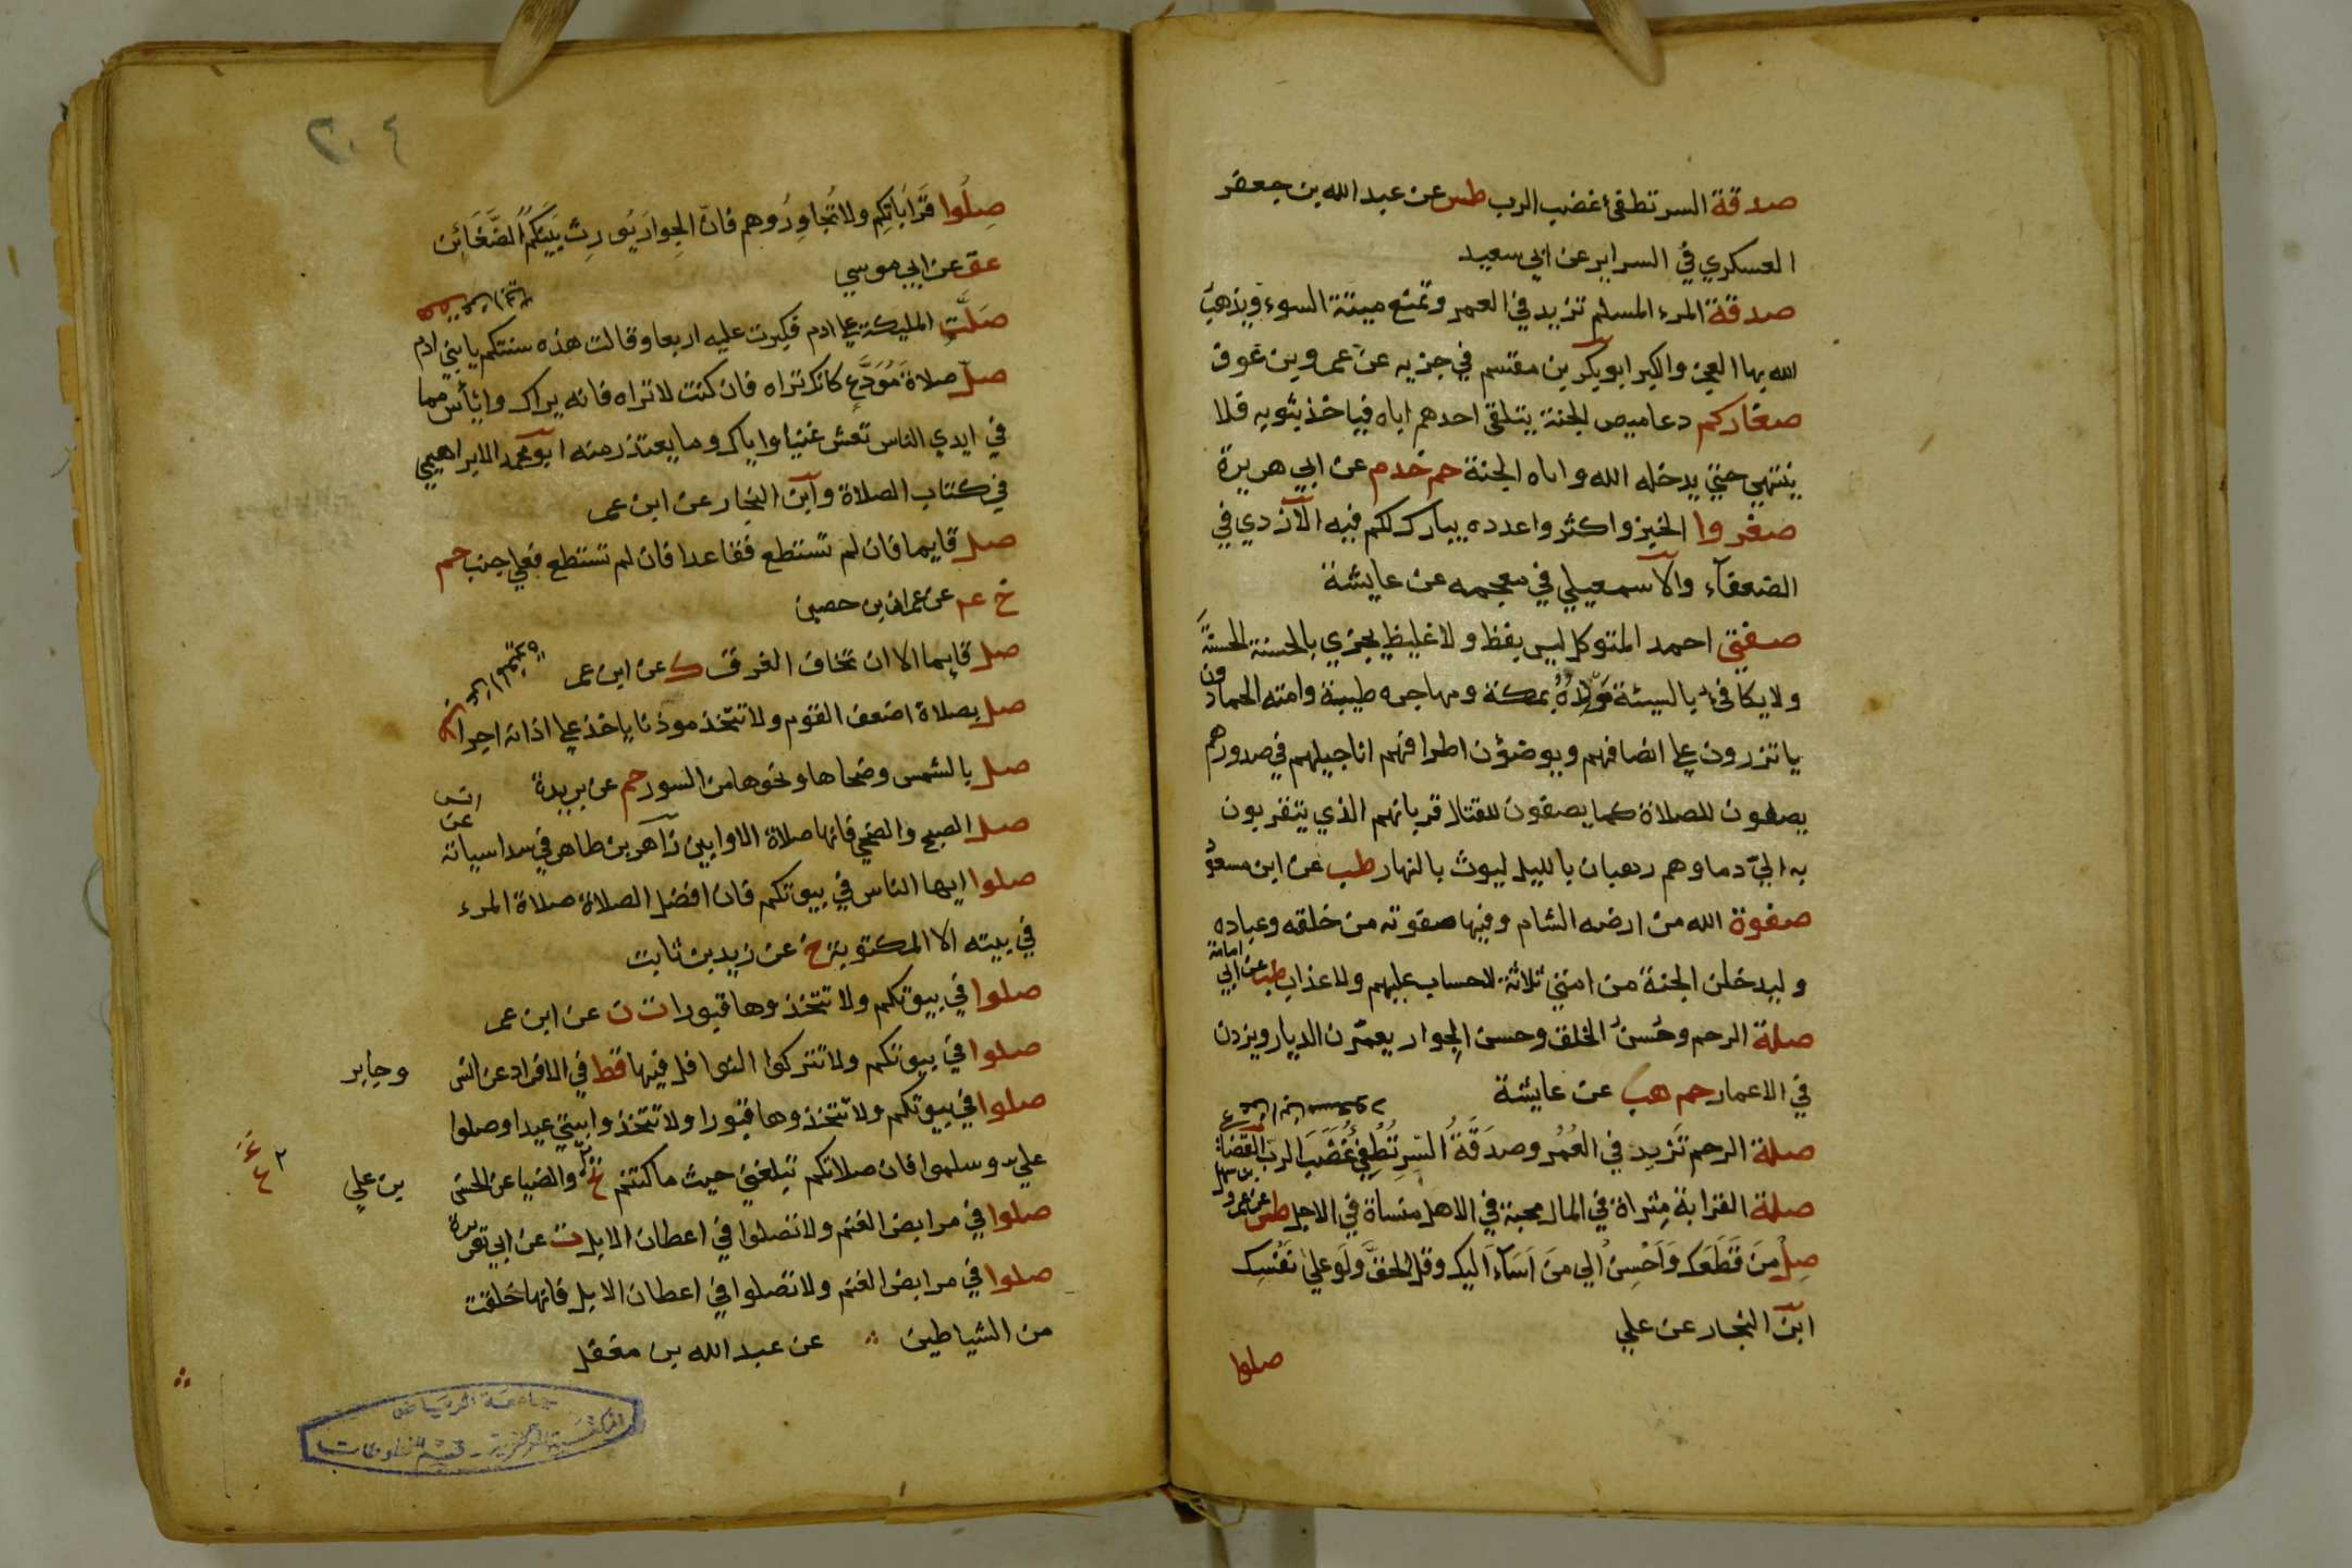 صدقة السر تطفئ غضب الرب طس عن عبد الله بن جعفر
العسكري في السراير عن ابي سعيد
صدقة المرء المسلم تزيد في العمر وتمنع ميتة السوء ويذهب
الله بها الفخر والكبر ابو بكر بن مقسم في جزيه عن عمرو بن عوف
صغاركم دعاميص الجنة يتلقى احدهم اباه فياخذ بثوبه فلا
ينتهي حتي يدخله الله واباه الجنة حم خد م عن ابي هريرة
صغروا الخبز واكثروا عدده يبارك لكم فيه الازدي في
الضعفآء والاسمعيلي في معجمه عن عايشة
صفتي احمد المتوكل ليس بفظ ولا غليظ يجزي بالحسنة الحسنة
ولا يكافئ بالسيئة مولده بمكة ومهاجره طيبة وامته الحمادون
ياتزرون علي انصافهم ويوضؤن اطرافهم اناجيلهم في صدورهم
يصفون للصلاة كما يصفون للقتال قربانهم الذي يتقربون
به الي دماوهم رهبان بالليل ليوث بالنهار طب عن ابن مسعود
صفوة الله من ارضه الشام وفيها صفوته من خلقه وعباده
وليدخلن الجنة من امتي ثلاثة لا حساب عليهم ولا عذاب طب عن ابي امامة
صلة الرحم وحُسنُ الخلق وحسن الجوار يعمّرن الديار ويزدن
في الاعمار حم هب عن عايشة
صلة الرحم تَزيد في العُمُر وصدَقَةُ السِّر تُطْفِئُ غَضَبَ الربّ القضاعي عن ابن مسعود
صلة القرابة مثراة في المال محبة في الاهل منسأة في الاجل طس عن عمرو بن سهل
صِلْ مَن قَطَعَك وَاَحْسِن الي مَن اَسَآءَ اليك وقل الحقَّ ولَو علي نَفْسِك
ابن النجار عن علي
صلوا
٢٠٤
صِلُوا قَرَاباتِكم ولا تُجاوِرُوهم فانّ الجِوارَ يُورِث بَيْنَكُمُ الضَّغَائِن
عق عن ابي موسي
صَلَّتِ المليكة علي ادم فكبرت عليه اربعا وقالت هذه سنتكم يا بني ادم
صلّ صلاة مُوَدَّعٍ كانك تراه فان كنت لا تراه فانه يراك وايأس مما
في ايدي الناس تعش غنيا واياك وما يعتذر منه ابو محمد الابراهيمي
في كتاب الصلاة وابن النجار عن ابن عمر
صل قايما فان لم تستطع فقاعدا فان لم تستطع فعلي جنب حم
خ عم عن عمران بن حصين
صل قايما الا ان تخاف الغرق ك عن ابن عمر
صل بصلاة اضعف القوم ولا تتخذ موذنا ياخذ علي اذانه اجرا
صل بالشمس وضحاها ونحوها من السور حم عن بريدة
صل الصبح والضحي فانها صلاة الاوابين زاهر بن طاهر في سداسياته عن انس
صلوا ايها الناس في بيوتكم فان افضل الصلاة صلاة المرء
في بيته الا المكتوبة خ عن زيد بن ثابت
صلوا في بيوتكم ولا تتخذوها قبورا ت ن عن ابن عمر
صلوا في بيوتكم ولا تتركوا النوافل فيها قط في الافراد عن انس وجابر
صلوا في بيوتكم ولا تتخذوها قبورا ولا تتخذوا بيتي عيدا وصلوا
علي وسلموا فان صلاتكم تبلغني حيث ما كنتم ع والضيا عن الحسن بن علي
صلوا في مرابض الغنم ولا تصلوا في اعطان الابل ت عن ابي هريرة
صلوا في مرابض الغنم ولا تصلوا في اعطان الابل فانها خلقت
من الشياطين عن عبد الله بن مغفل
جامعة الرياض
المكتبة المركزية - قسم المخطوطات